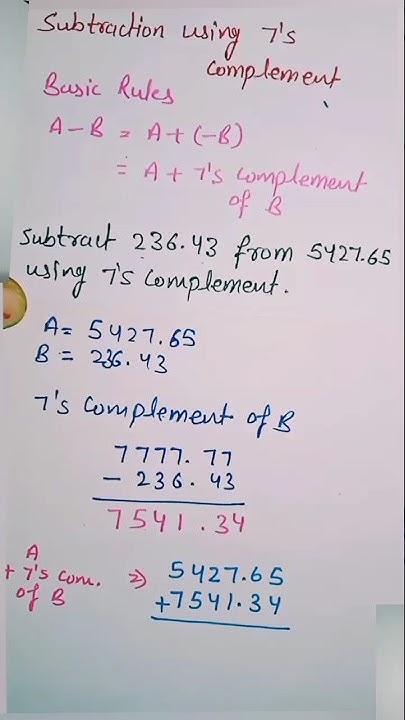 Subtraction using 7's
complement
Basic Rules
A - B = A + (-B)
= A + 7's complement
of B
Subtract 236.43 from 5427.65
using 7's Complement.
A = 5427.65
B = 236.43
7's Complement of B
7777.77
- 236.43
7541.34
A
+ 7's com. ⇒ 5427.65
of B +7541.34